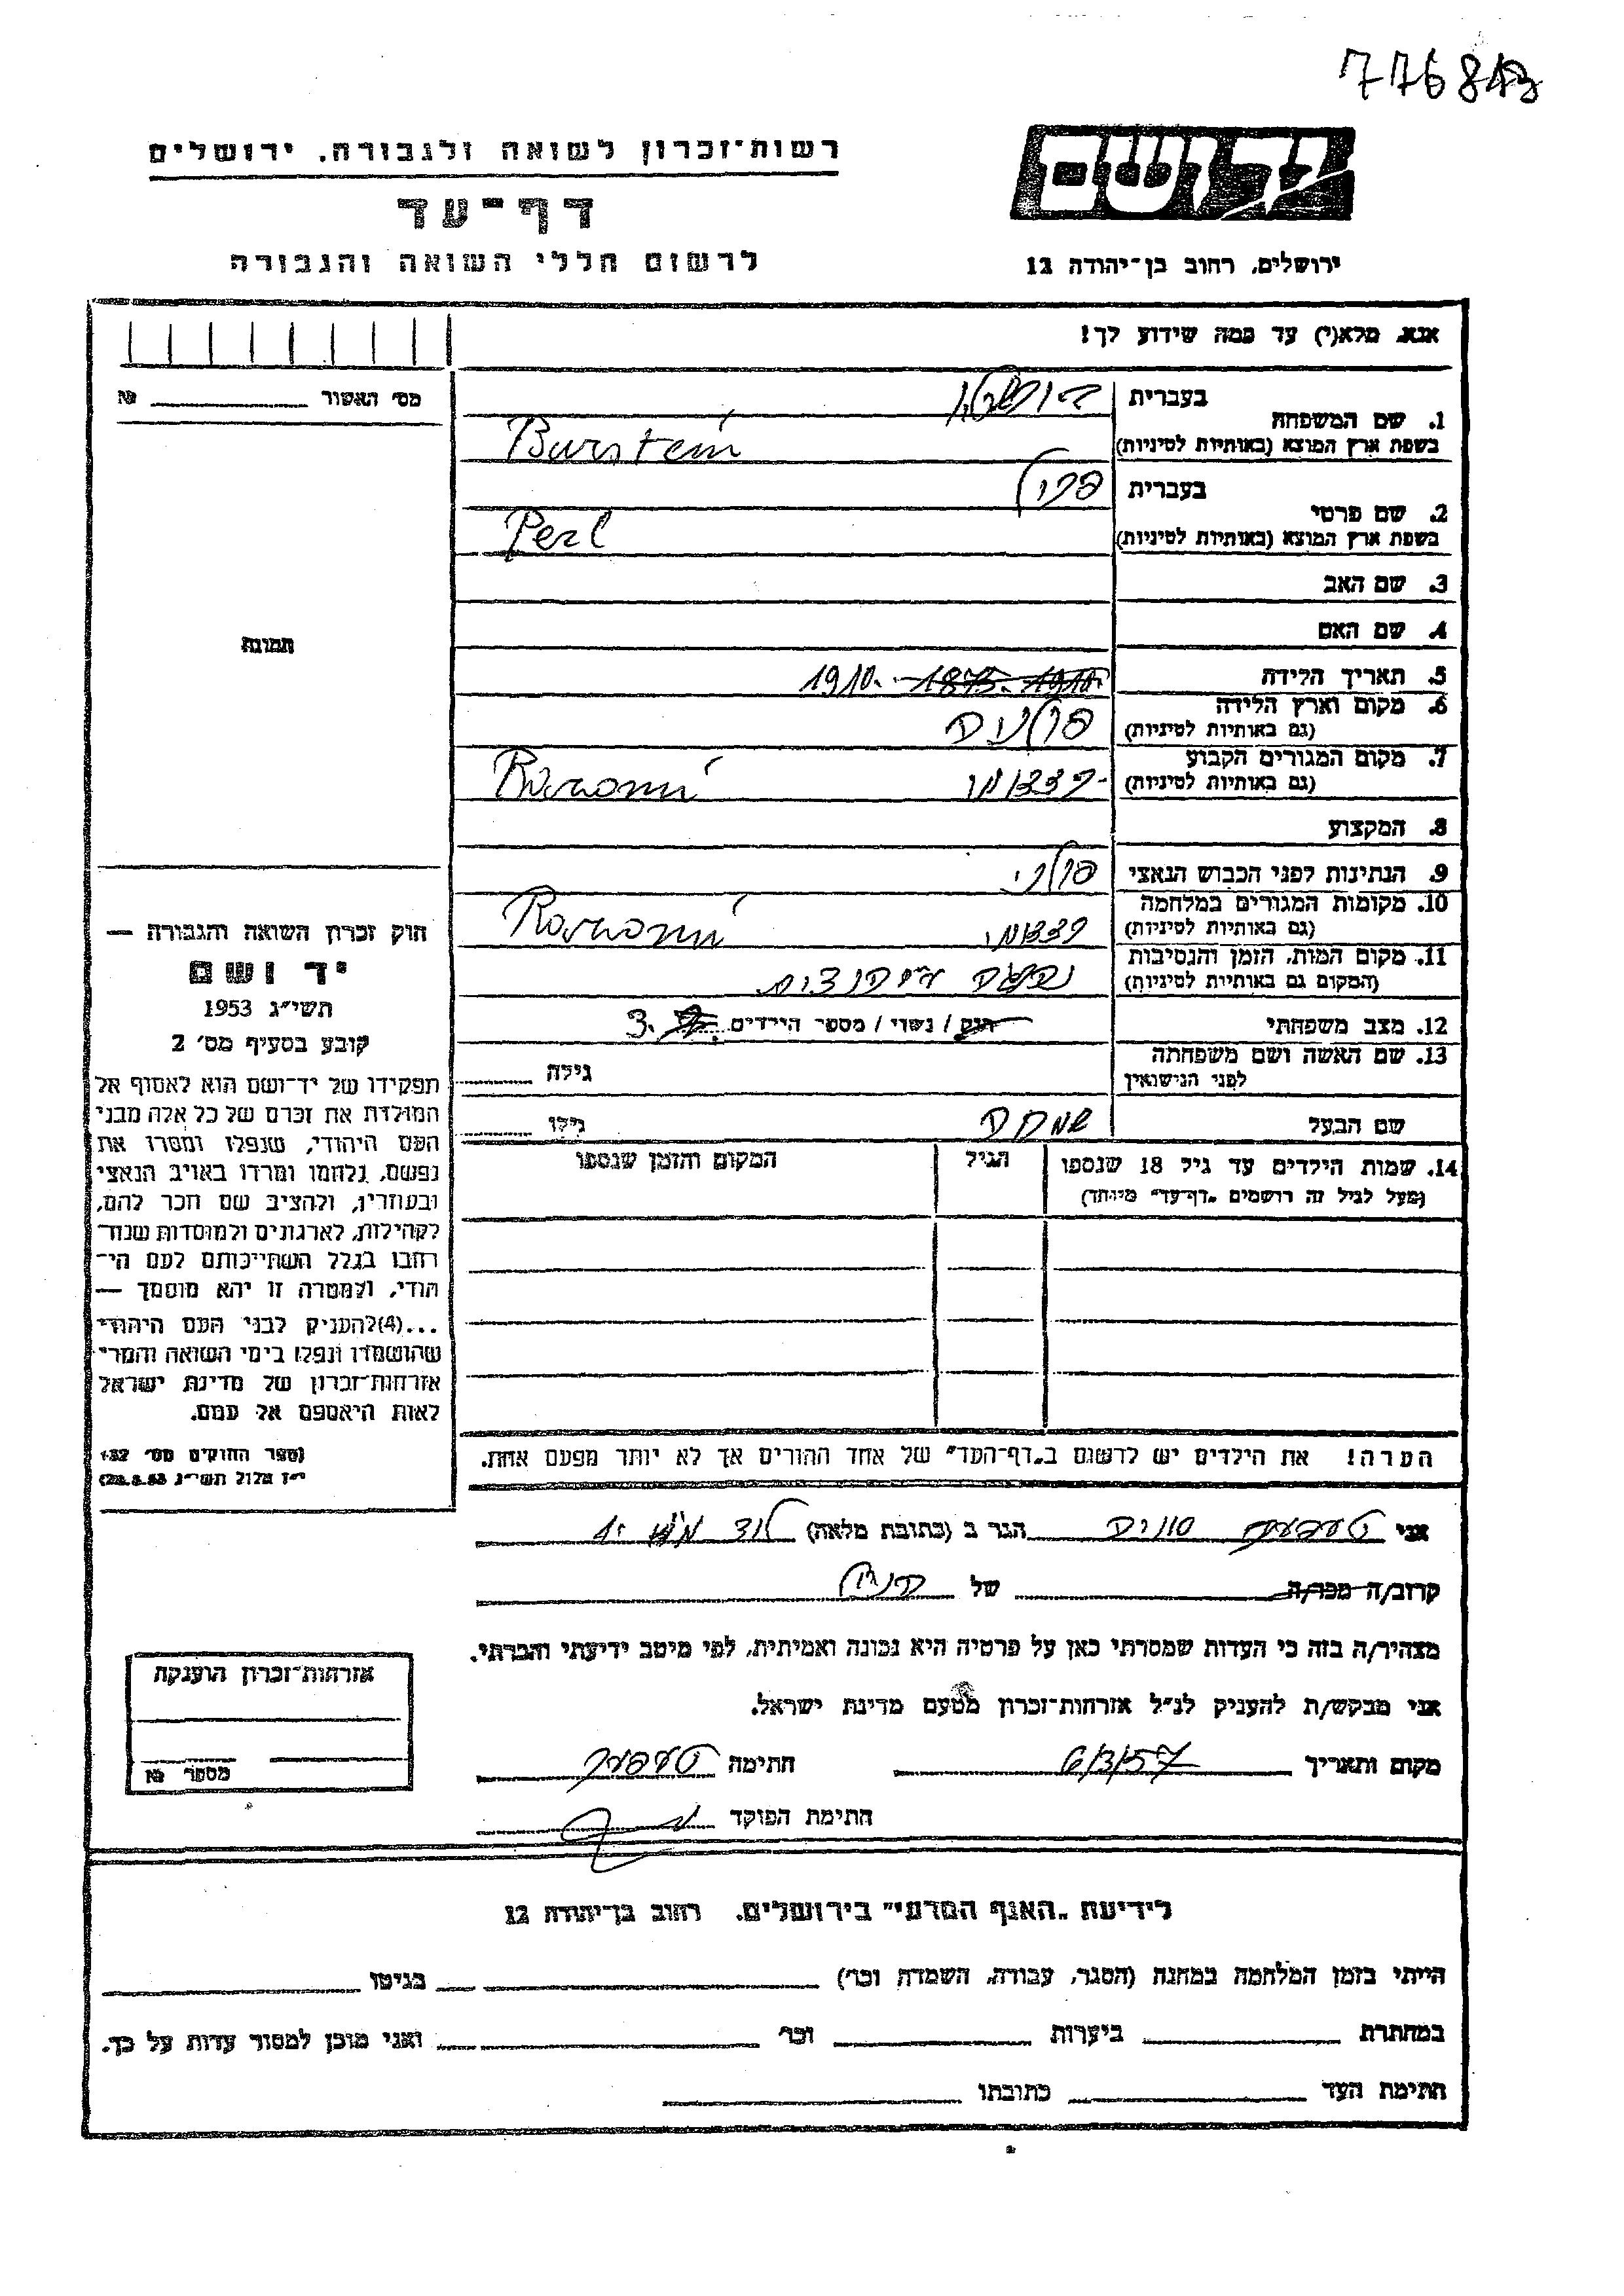 776843
יד ושם
ירושלים, רחוב בן־יהודה 12
רשות־זכרון לשואה ולגבורה, ירושלים
דף־עד
לרשום חללי השואה והגבורה
אנא, מלא(י) עד כמה שידוע לך!
מס׳ האשור №
1. שם המשפחה
בעברית בורשטין
בשפת ארץ המוצא (באותיות לטיניות) Burstein
2. שם פרטי
בעברית פרל
בשפת ארץ המוצא (באותיות לטיניות) Perl
3. שם האב
4. שם האם
5. תאריך הלידה 1910. 1875. 1910.
6. מקום וארץ הלידה פולניה
(גם באותיות לטיניות)
7. מקום המגורים הקבוע
(גם באותיות לטיניות)
8. המקצוע
9. הנתינות לפני הכבוש הנאצי פולני
10. מקומות המגורים במלחמה
(גם באותיות לטיניות)
11. מקום המות, הזמן והנסיבות
(המקום גם באותיות לטיניות)
12. מצב משפחתי רווק / נשוי / מספר הילדים 3.
13. שם האשה ושם משפחתה
לפני הנישואין גילה
שם הבעל שמחה גילו
14. שמות הילדים עד גיל 18 שנספו הגיל המקום והזמן שנספו
(מעל לגיל זה רושמים „דף־עד״ מיוחד)
הערה! את הילדים יש לרשום ב„דף־העד״ של אחד ההורים אך לא יותר מפעם אחת.
תמונה
חוק זכרון השואה והגבורה —
יד ושם
תשי״ג 1953
קובע בסעיף מס׳ 2
תפקידו של יד־ושם הוא לאסוף אל
המולדת את זכרם של כל אלה מבני
העם היהודי, שנפלו ומסרו את
נפשם, נלחמו ומרדו באויב הנאצי
ובעוזריו, ולהציב שם וזכר להם,
לקהילות, לארגונים ולמוסדות שנח־
רבו בגלל השתייכותם לעם הי־
הודי, ולמטרה זו יהא מוסמך —
...(4)להעניק לבני העם היהודי
שהושמדו ונפלו בימי השואה והמרי
אזרחות־זכרון של מדינת ישראל
לאות היאספם אל עמם.
(ספר החוקים מס׳ 132
י״ז אלול תשי״ג 28.8.53)
אני הגר ב (כתובת מלאה) לוד
קרוב/ה מכר/ה של
מצהיר/ה בזה כי העדות שמסרתי כאן על פרטיה היא נכונה ואמיתית, לפי מיטב ידיעתי והכרתי.
אני מבקש/ת להעניק לנ״ל אזרחות־זכרון מטעם מדינת ישראל.
מקום ותאריך 6/3/57 חתימה
חתימת הפוקד
אזרחות־זכרון הוענקה
מספר №
לידיעת „האגף המדעי״ בירושלים, רחוב בן־יהודה 12
הייתי בזמן המלחמה במחנה (הסגר, עבודה, השמדה וכו׳) בגיטו
במחתרת ביערות וכו׳ ואני מוכן למסור עדות על כך.
חתימת העד כתובתו